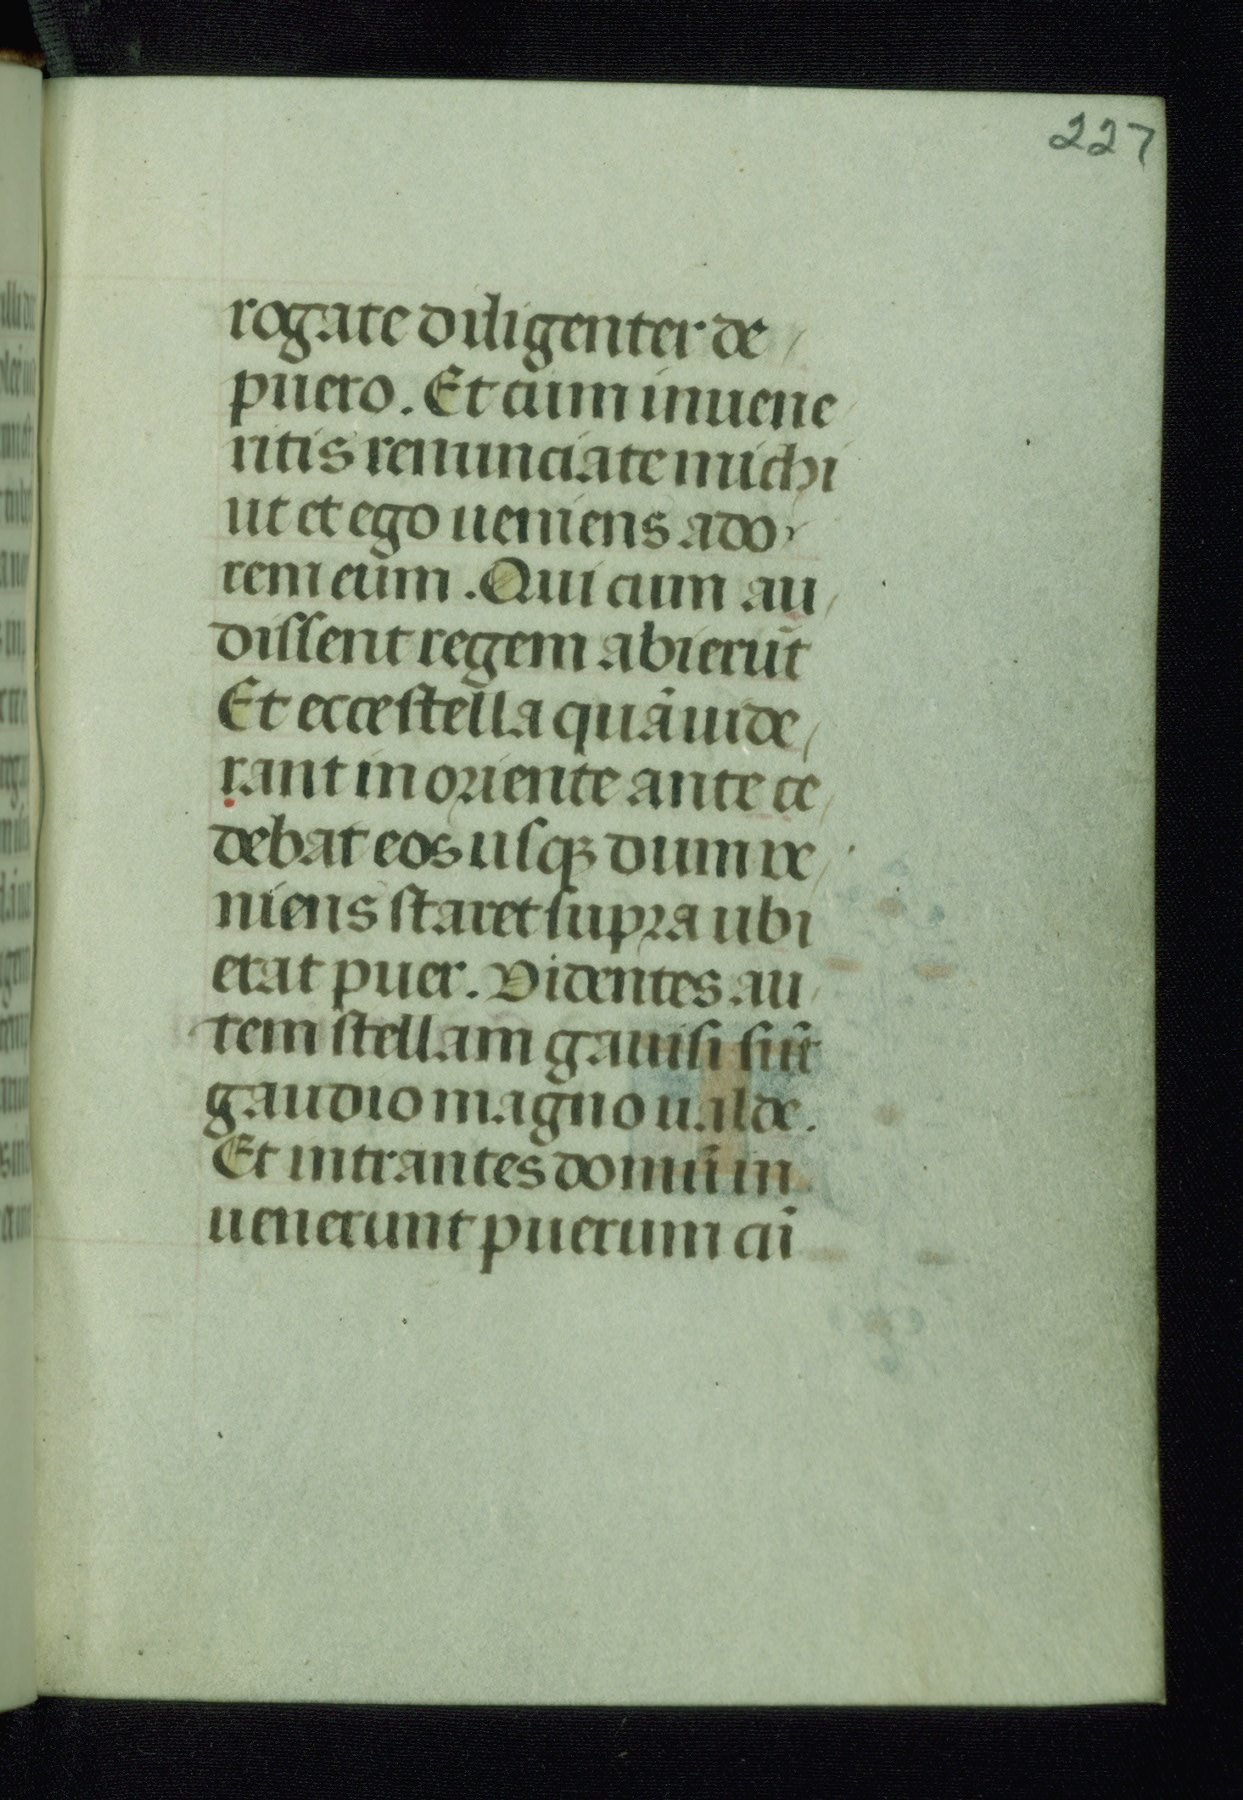 227
rogate diligenter de
puero. Et cum inuene
ritis renunciate michi
ut et ego ueniens ado
rem eum. Qui cum au
dissent regem abierūt
Et ecce stella quā uide
rant in oriente ante ce
debat eos usqꝫ dum ue
niens staret supra ubi
erat puer. Videntes au
tem stellam gauisi sūt
gaudio magno ualde.
Et intrantes domū in
uenerunt puerum cū